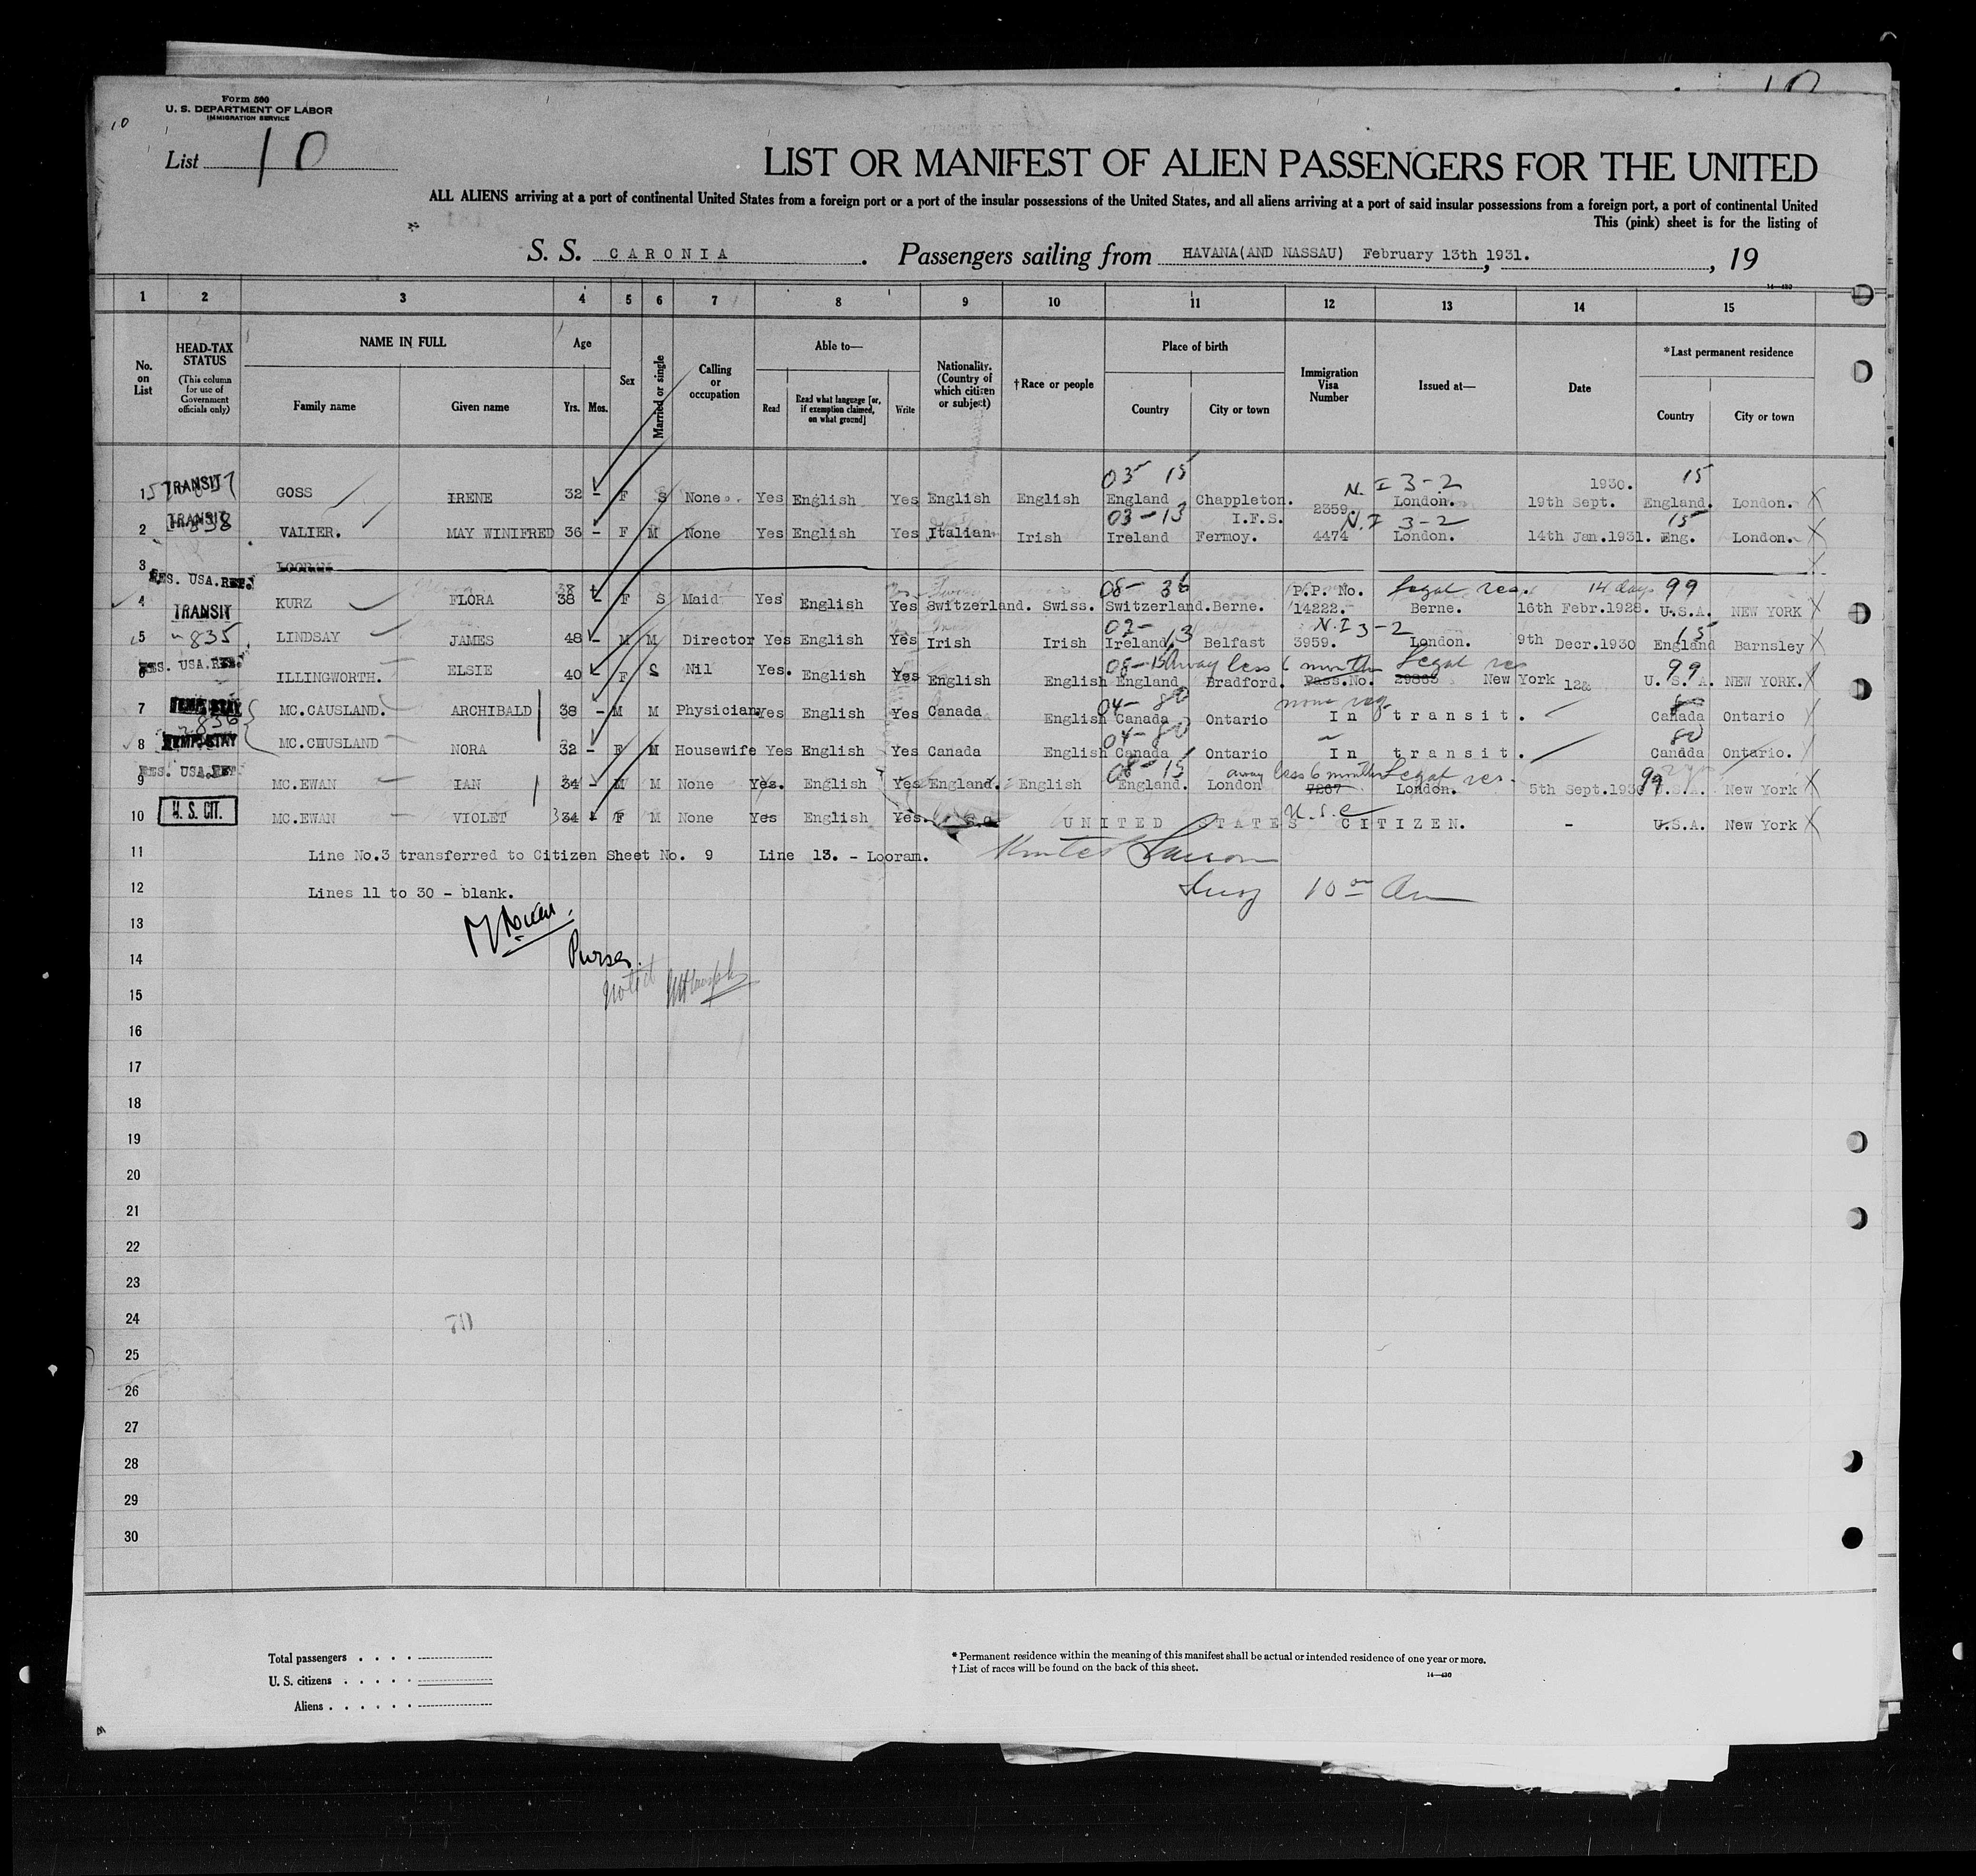 Form 500
U. S. DEPARTMENT OF LABOR
IMMIGRATION SERVICE
10
10
List 10
LIST OR MANIFEST OF ALIEN PASSENGERS FOR THE UNITED
ALL ALIENS arriving at a port of continental United States from a foreign port or a port of the insular possessions of the United States, and all aliens arriving at a port of said insular possessions from a foreign port, a port of continental United
This (pink) sheet is for the listing of
S. S. CARONIA. Passengers sailing from HAVANA(AND NASSAU) February 13th 1931. , 19
14-430
1 2 3 4 5 6 7 8 9 10 11 12 13 14 15
No. on List
HEAD-TAX STATUS (This column for use of Government officials only)
NAME IN FULL
Family name Given name
Age
Yrs. Mos.
Sex
Married or single
Calling or occupation
Able to—
Read Read what language [or, if exemption claimed, on what ground] Write
Nationality. (Country of which citizen or subject)
†Race or people
Place of birth
Country City or town
Immigration Visa Number
Issued at—
Date
*Last permanent residence
Country City or town
03 15 N. I 3-2 1930. 15
1 TRANSIT GOSS IRENE 32 - F S None. Yes English Yes English English England Chappleton. 2359. London. 19th Sept. England. London. X
03-13 I.F.S. N.I 3-2 15
2 TRANSIT 838 VALIER. MAY WINIFRED 36 - F M None Yes English Yes Italian Irish Ireland Fermoy. 4474 London. 14th Jan.1931. Eng. London. X
3 LOORAM
RES. USA. REF. 08- 36 P.P. No. Legal res. 14 days 99
4 TRANSIT KURZ FLORA 38 - F S Maid Yes English Yes Switzerland. Swiss. Switzerland. Berne. 14222. Berne. 16th Febr.1928. U.S.A. NEW YORK X
03- 13 N.I 3-2 15
5 835 LINDSAY JAMES 48 - M M Director Yes English Yes Irish Irish Ireland Belfast 3959. London. 9th Decr.1930 England Barnsley X
RES. USA. REF. 08-15 Away less 6 months Legal res 99
6 ILLINGWORTH. ELSIE 40 - F S Nil Yes. English Yes English English England Bradford. Pass.No. 29863 New York U.S.A. NEW YORK. X
04- 80 none req. 80
7 TEMP. STAY MC.CAUSLAND. ARCHIBALD 38 - M M Physician. Yes English Yes Canada English Canada Ontario In transit. Canada Ontario
836
04-80 80
8 TEMP. STAY MC.CHUSLAND NORA 32 - F M Housewife Yes English Yes Canada English Canada Ontario In transit. Canada Ontario.
RES. USA. REF. 08-15 away less 6 months Legal res. 99
9 MC.EWAN IAN 34 - M M None Yes. English Yes England. English England. London 7267 London. 5th Sept.1930 U.S.A. New York X
U.S.C
10 U. S. CIT. MC.EWAN VIOLET 34 - F M None Yes English Yes. UNITED STATES CITIZEN. - U.S.A. New York X
11 Line No.3 transferred to Citizen Sheet No. 9 Line 13. - Looram.
12 Lines 11 to 30 - blank. 10 00 Am
13
14 Purser.
15 noted
16
17
18
19
20
21
22
23
24
25
26
27
28
29
30
Total passengers . . . .
U. S. citizens . . . . .
Aliens . . . . . .
* Permanent residence within the meaning of this manifest shall be actual or intended residence of one year or more.
† List of races will be found on the back of this sheet.
14-430